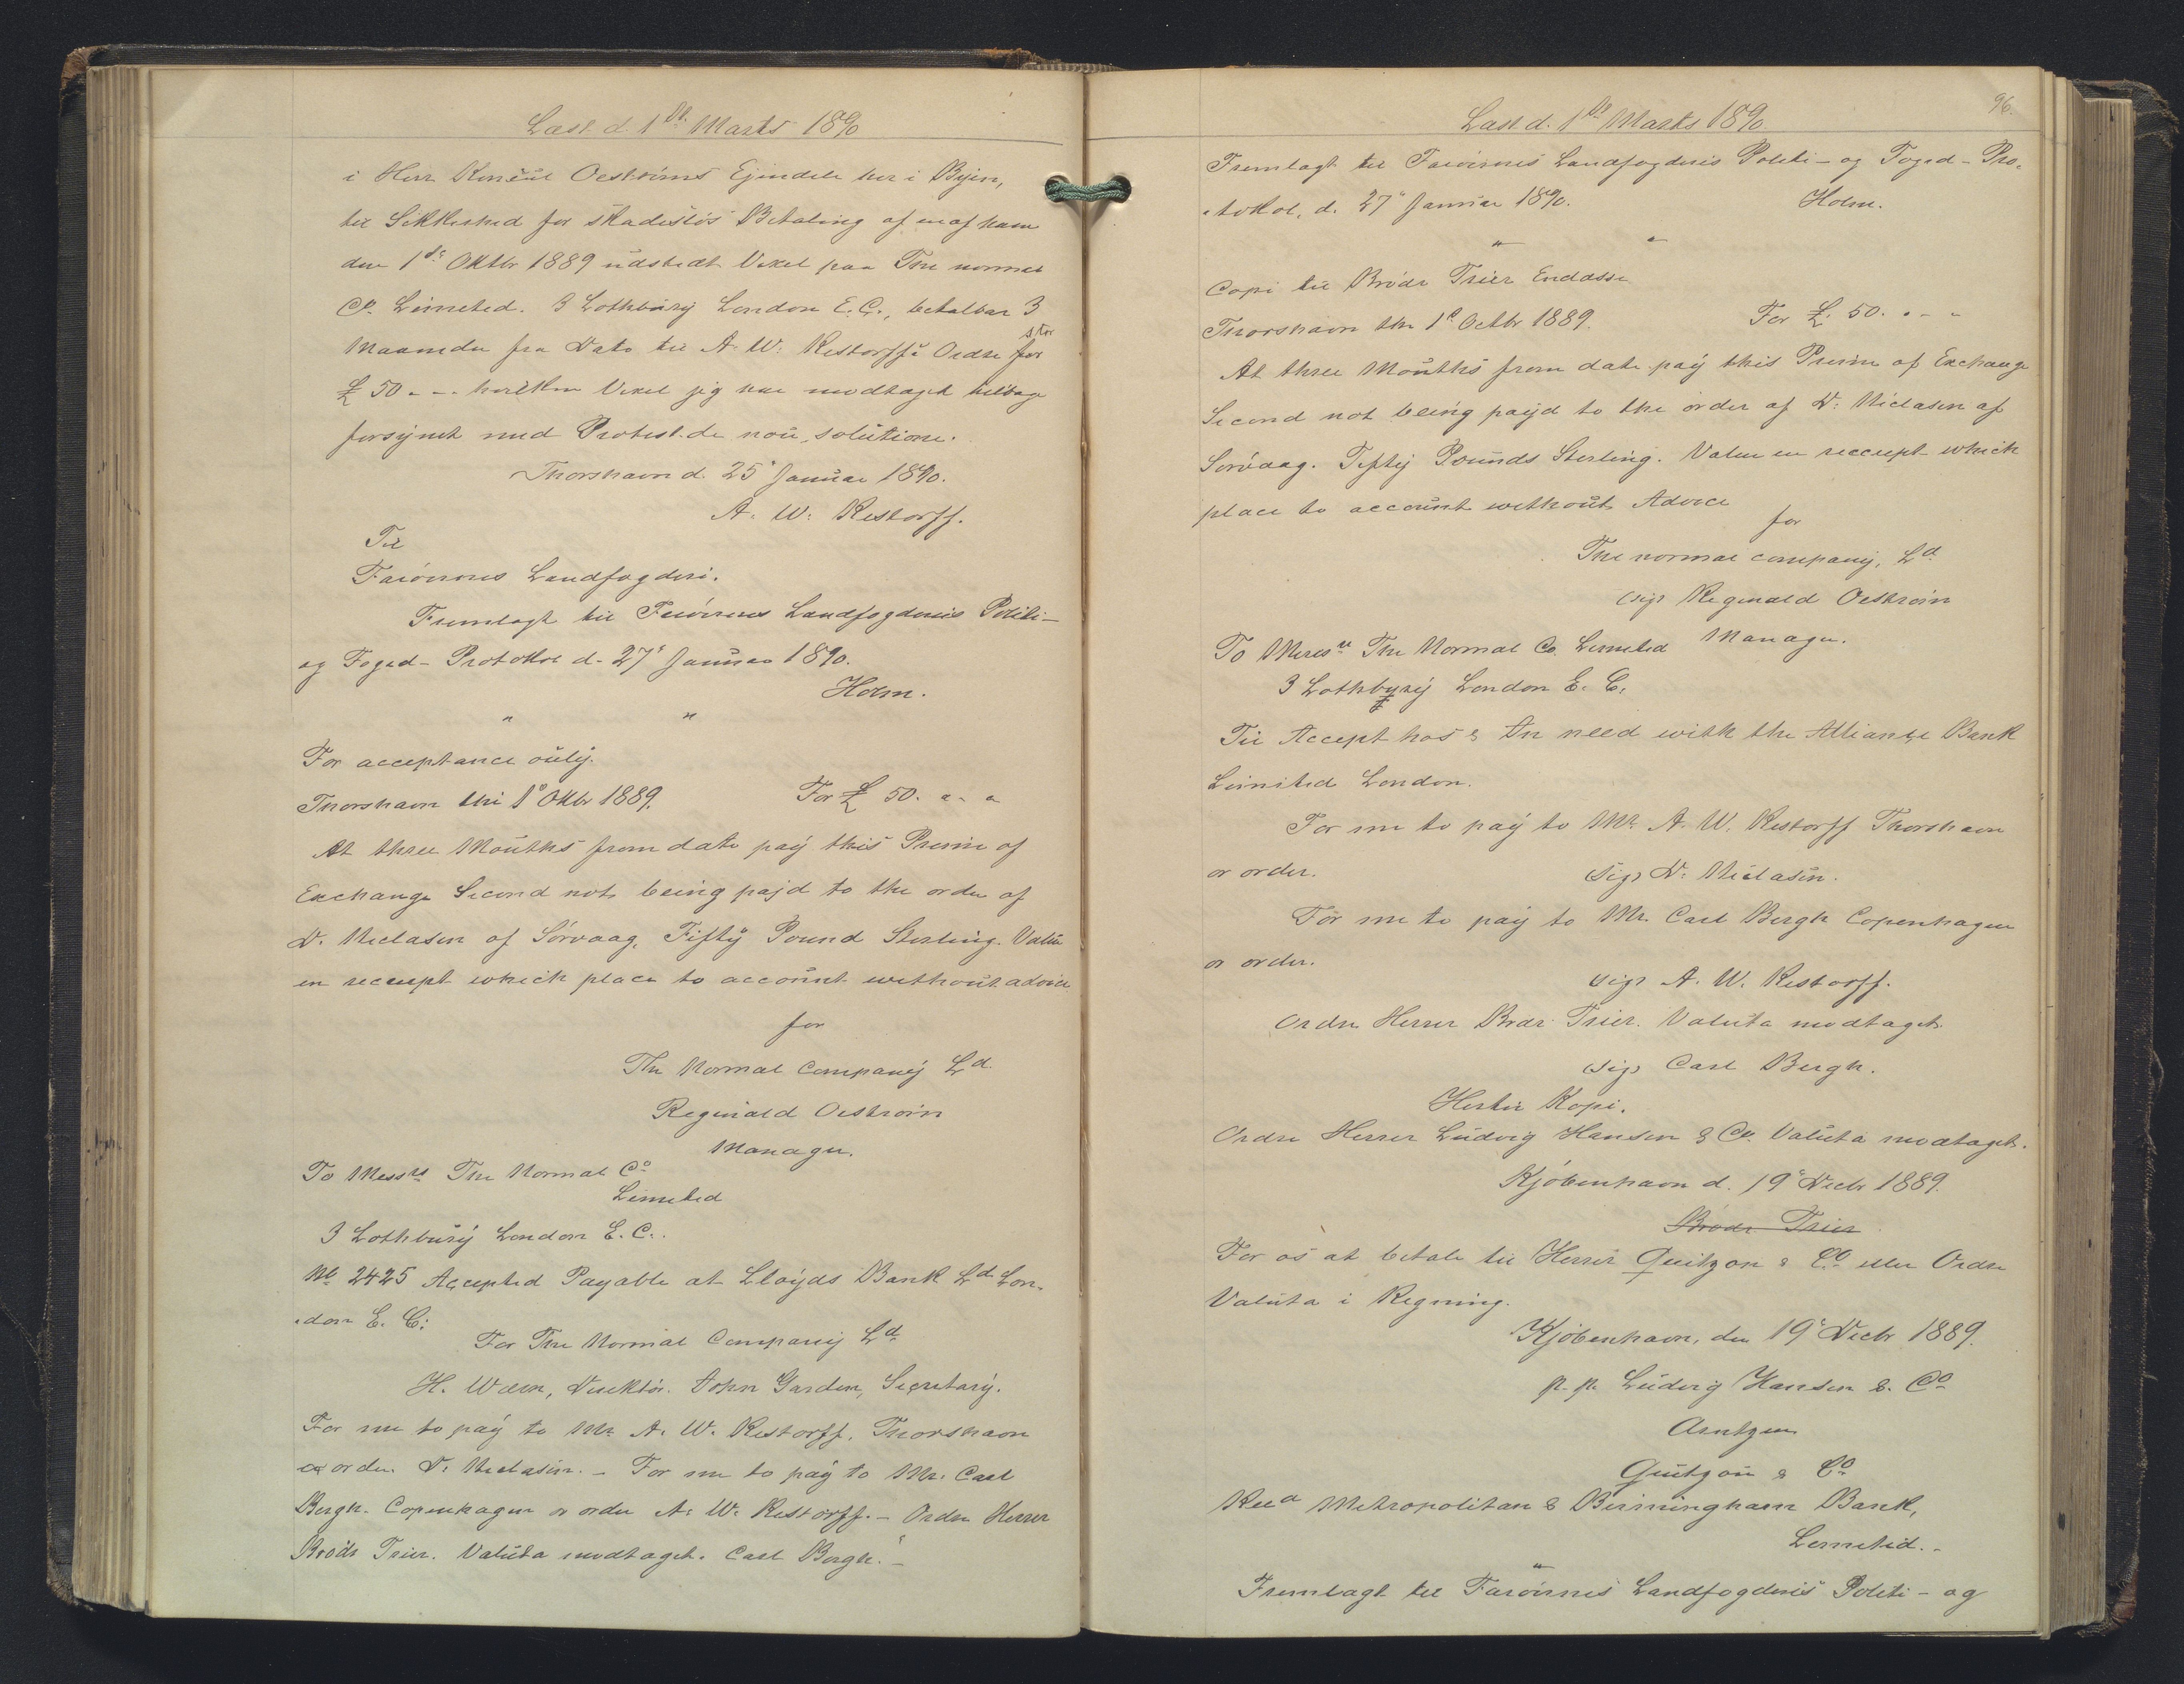 Læst d. 1ste Marts 1890
i Herr Konsul Oestrøms Ejendele her i Byen,
til Sikkerhed for skadesløs Betaling af en af ham
den 1ste Oktbr 1889 udstedt Vexel paa The normal
Co. Limeted. 3 Lothbury London E. C., betalbar 3
Maaneder fra Dato til A. W. Restorffs Ordre stor
for
£ 50 - - hvilken Vexel jeg har modtaget tilbage
forsynet med Protest de non solutione.
Thorshavn d. 25' Januar 1890.
A. W. Restorff.
Til
Færøernes Landfogderi.
Fremlagt til Færøernes Landfogderies Politi-
og Foged-Protokol d. 27' Januar 1890.
Holm.
" "
For acceptance only.
Thorshavn thi 1' Oktbr 1889. For £ 50. " "
At three Mouths from date pay this Preme of
Exchange Second not being pajd to the order of
D. Niclasen of Sørvaag, Fifty Pound Sterling. Value
en receept which place to account without advice
for
The Normal Company Ld
Reginald Oestrøm
Manager.
To Messrs The Normal Co
Limeted
3 Lothbury London E. C..
No 2425 Accepted Payable at Lloyds Bank Ld Lon-
don E. C:
For The Normal Company Ld
H. Direktør. John Garden, Secretary.
For me to pay to Mr A. W. Restorff, Thorshavn
or order. D. Niclasen. - For me to pay to Mr. Carl
Bergh. Copenhagen or order A. W. Restorff. - Ordre Herrer
Brödr Trier. Valuta modtaget. Carl Bergh. -
96.
Læst d. 1ste Marts 1890
Fremlagt til Færøernes Landfogderis Politi- og Foged-Pro-
tokol, d. 27' Januar 1890. Holm.
" "
Copi til Brödr Trier Endosse
Thorshavn the 1' Octbr 1889. For £. 50. " - -
At three Mouths from date pay this Preme of Exchange
Second not being payd to the order of D. Niclasen af
Sorvaag. Fiftij Pounds Sterling. Value en receept which
place to account without Advice
for
The normal company, Ld
(sig) Reginald Oestrøm
Manager.
To Meres" The Normal Co. Limeted
3 Lothbyry London E. C.
Til Accept hos & In need with the Alliance Bank
Limited London.
For me to pay to Mr. A. W. Restorff Thorshavn
or order. (sig) D. Niclasen.
For me to pay to Mr. Carl Bergh Copenhagen
or order.
(sig) A. W. Restorff.
Ordre Herrer Brdr Trier. Valuta modtaget.
(sig) Carl Bergh.
Hertil Kopi.
Ordre Herrer Ludvig Hansen & Co. Valuta modtaget.
Kjøbenhavn d. 19' Decbr 1889.
Brodr Trier
For os at betale til Herrer Quitzon & Co eller Ordre
Valuta i Regning.
Kjøbenhavn, den 19' Decbr 1889.
p. p. Ludvig Hansen & Co
Arntzen
Quitzon & Co
Metropolitan & Birmingham Bank,
Lemetid. -
"
Fremlagt til Færøernes Landfogderies Politi- og